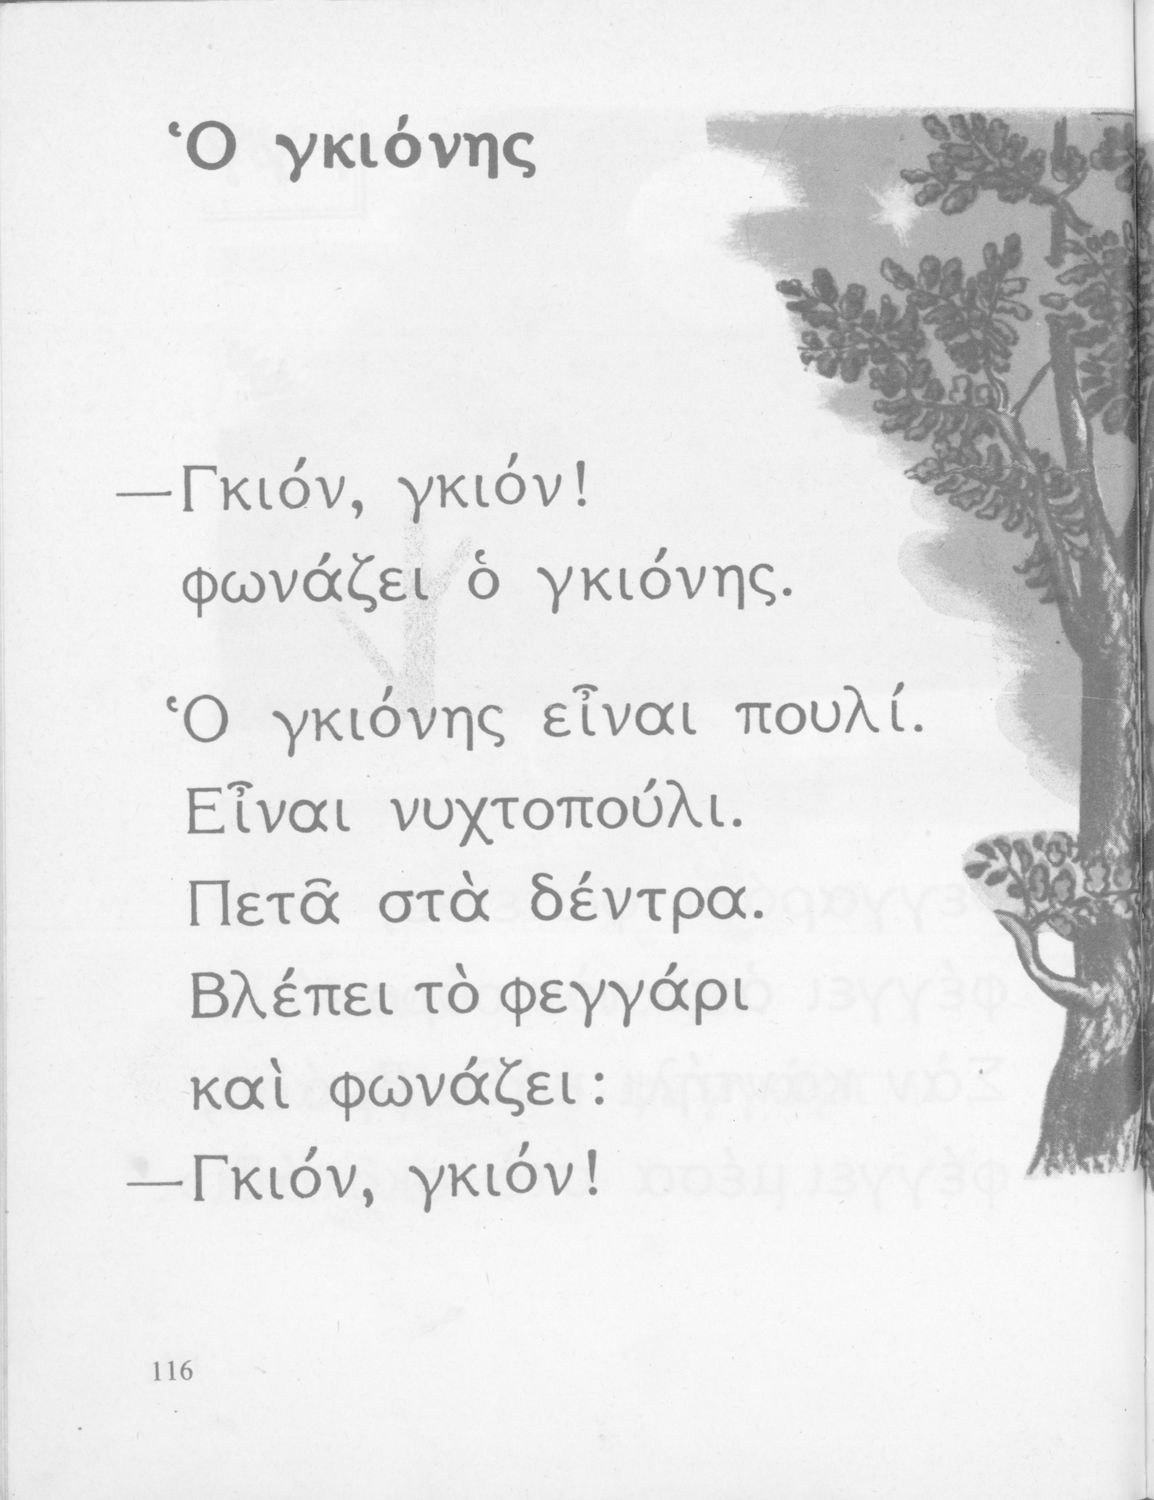 Ὁ γκιόνης
—Γκιόν, γκιόν!
φωνάζει ὁ γκιόνης.
Ὁ γκιόνης εἶναι πουλί.
Εἶναι νυχτοπούλι.
Πετᾶ στὰ δέντρα.
Βλέπει τὸ φεγγάρι
καὶ φωνάζει:
—Γκιόν, γκιόν!
116